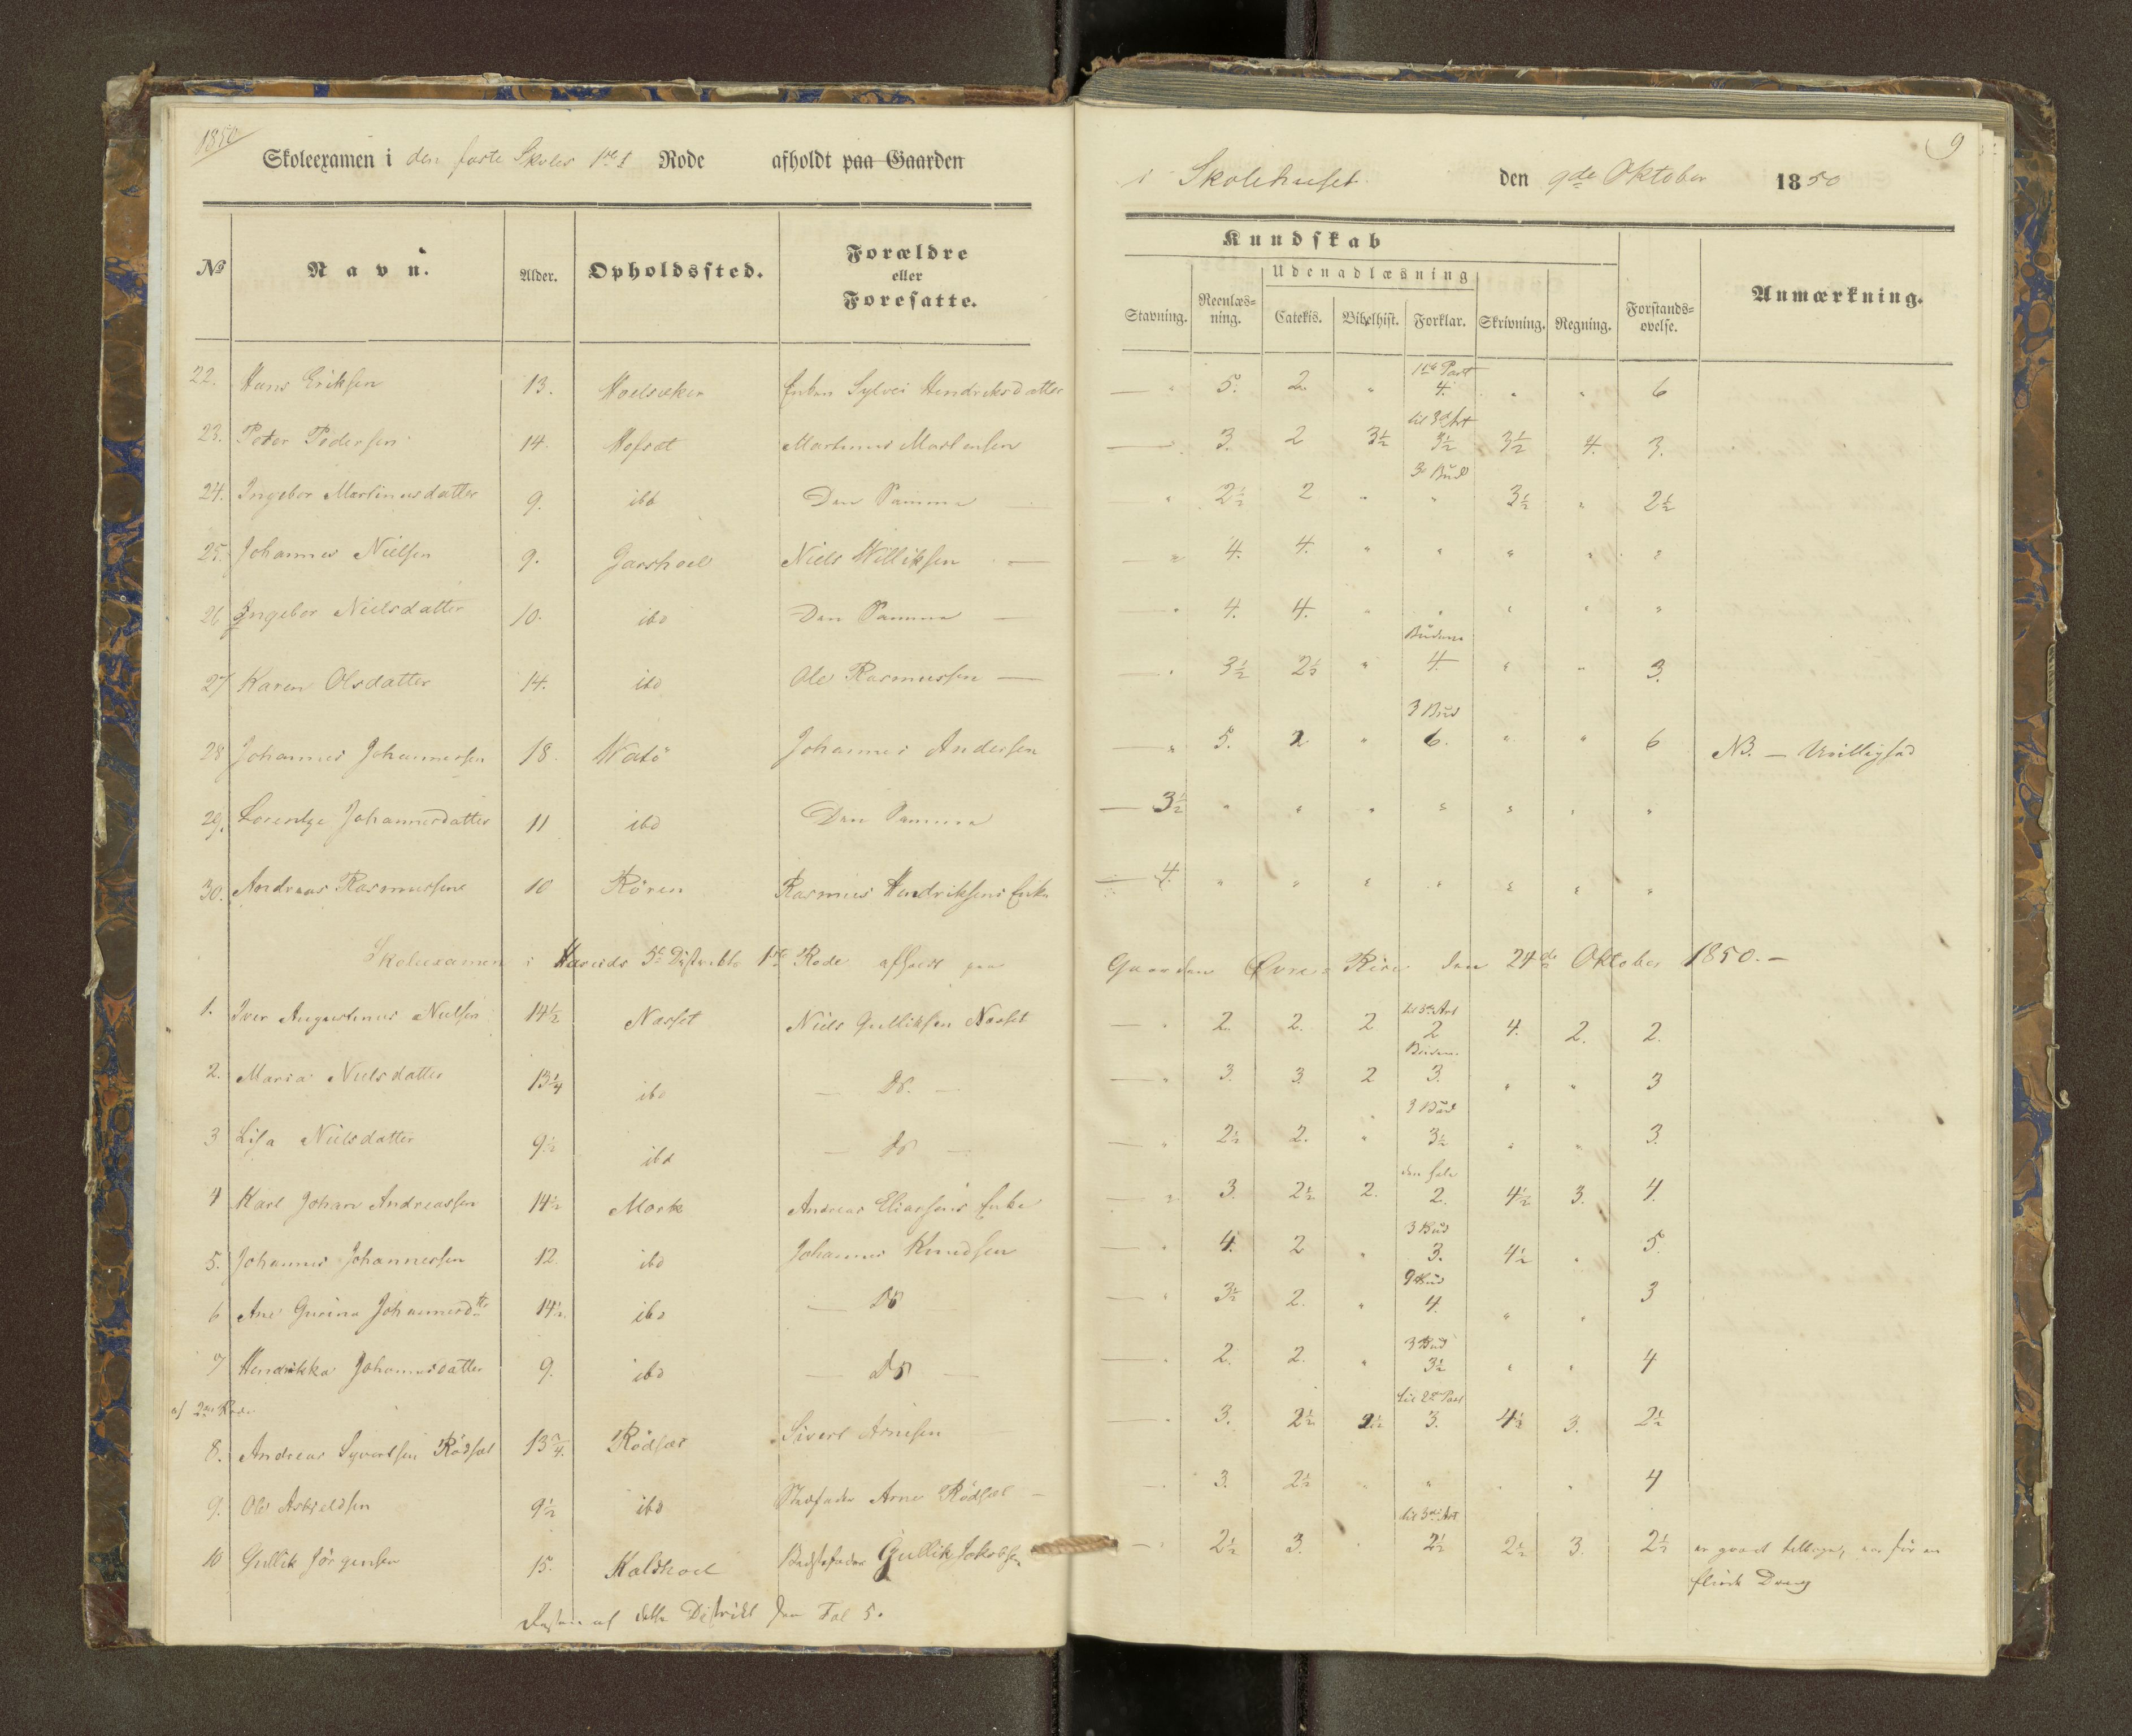 1850
9
Skoleexamen i den faste Skoles 1ste Rode afholdt paa Gaarden i Skolehuset den 9de Oktober 1850
No Navn. Alder. Opholdssted. Forældre eller Foresatte. Kundskab Stavning. Reenlæsning. Udenadlæsning Catekis. Bibelhist. Forklar. Skrivning. Regning. Forstandsøvelse. Anmærkning.
22. Hans Eriksen 13. Enken Sylvei Hendriksdatter — " 5. 2 " 1ste Part 4. " " 6
23. Peter Pedersen 14 Hofsæt Martinus Mortensen — 3. 2 3½ til 3d Art 3½ 3½ 4. 3.
24. Ingebor Martinusdatter 9. ibd Den Samme — " 2½ 2 " 3 Bud " 3½ " 2½
25. Johannes Nielsen 9. Garshoel Niels Williksen — — " 4. 4. " " " " "
26 Ingebor Nielsdatter 10. ibd Den Samme — — " 4. 4. " " " " "
27 Karen Olsdatter 14. ibd Ole Rasmussen — — " 3½ 2½ " Budene 4. " " 3.
28 Johannes Johannessen 18. Johannes Andersen — " 5. 2 " 3 Bud 6. " " 6 NB. — Uvillighed
29. Lorentze Johannesdatter 11 ibd Den Samme — 3½ " " " " " " "
30. Andreas Rasmussen 10 Røren Rasmus Hendriksens Enke — 4. " " " " " " "
Skoleexamen i Hareids 5te Distrikts 1ste Rode afholdt paa Gaarden Øvre-Rise den 24de Oktober 1850. —
1. Iver Augustinus Nielsen 14½ Nesset Niels Gulliksen Nesset — " 2. 2. 2 til 3die Art 2 4. 2. 2.
2. Maria Nielsdatter 13¼ ibd — Do. — — " 3. 3. 2 Budene 3. " " 3
3 Lisa Nielsdatter 9½ ibd — Do — — " 2½ 2. " 3 Bud 3½ " " 3.
4 Karl Johan Andreassen 14½ Mork Andreas Eliassens Enke — " 3. 2½ 2. den hele 2. 4½ 3. 4.
5. Johannes Johannessen 12 ibd Johannes Knudsen — " 4. 2 " 3 Bud 3. 4½ " 5.
6 Ane Gurina Johannesdttr 14½ ibd — Do — " 3½ 2. " 9 Bud 4. " " 3
7 Hendrikka Johannesdatter 9. ibd — Do — — " 2. 2. " 3 Bud 3½ " " 4
af 2den Rode
8. Andreas Syvertsen Rødset 13¾. Rødset Sivert Arnesen — " 3. 2½ 2½ til 2de Part 3. 4½ 3. 2½
9. Ole Askjeldsen 9½ ibd Arne Rødset — — " 3. 2½ " " " " 4
10 Gullik Jørgensen 15. Kaldhoel Bedstefader Gullik Jakobsen — " 2½ 3. " til 3die Art 2½ 2½ 3. 2½ er gaaet tilbage, var før en
flink Dreng
Resten af dette Distrikt see Fol 5.